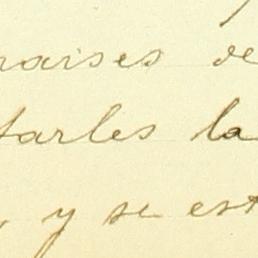 raises de
tarles la
y se est